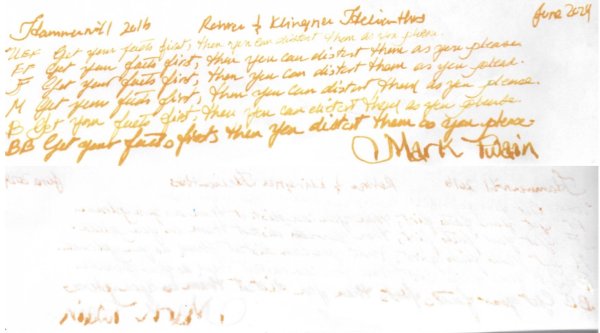 Hammermill 2016 Rohrer & Klingner Helianthus June 2024
UEF Get your facts first, then you can distort them as you please.
EF Get your facts first, then you can distort them as you please.
F Get your facts first, then you can distort them as you please.
M Get your facts first, then you can distort them as you please.
B Get your facts first, then you can distort them as you please.
BB Get your facts firsts then you distort them as you please.
Mark Twain